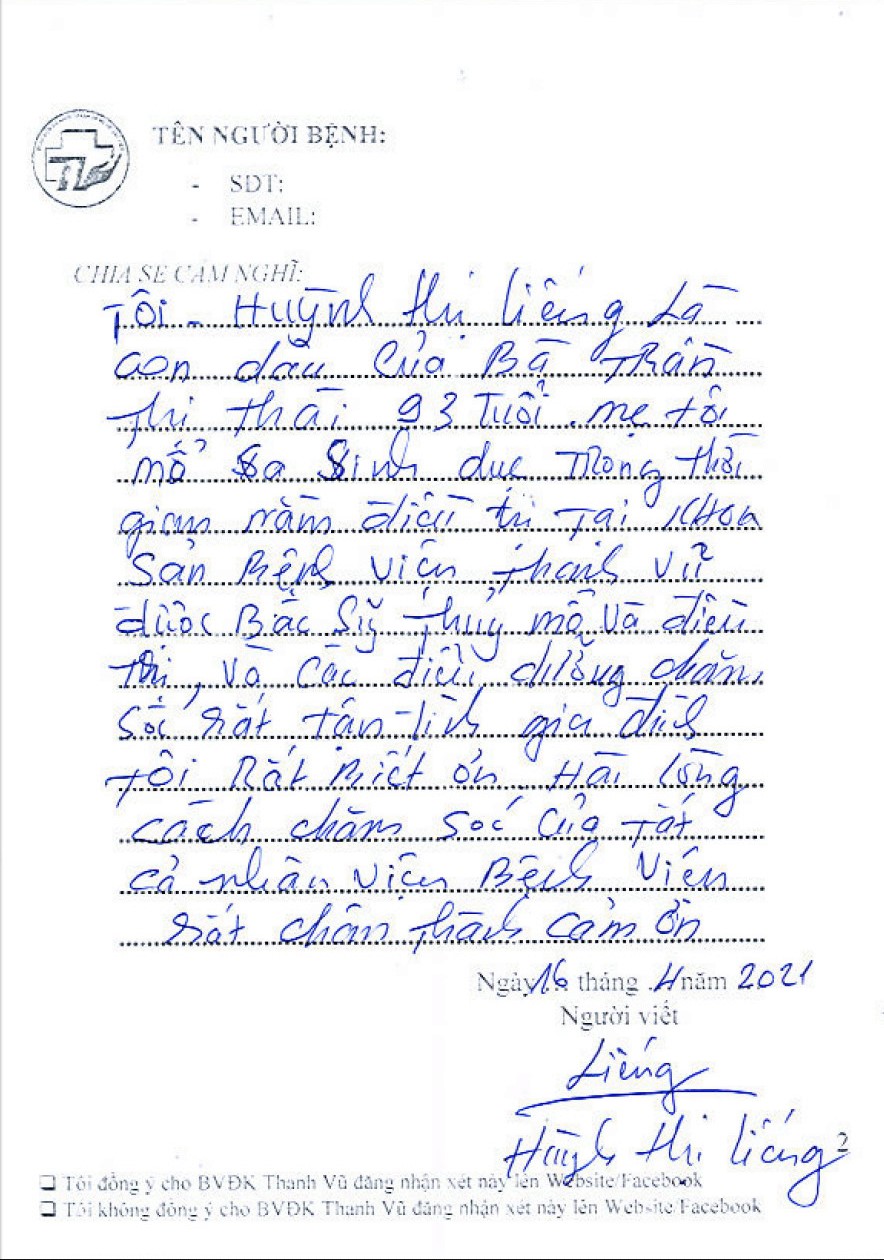 TÊN NGƯỜI BỆNH:
- SDT:
- EMAIL:
CHIA SẺ CẢM NGHĨ:
Tôi - Huỳnh thị Liếng Là
con dâu của Bà Trần
thị thái 93 Tuổi . mẹ tôi
mổ sa sinh dục Trong thời
gian nằm điều trị Tại KHoa
Sản Bệnh viện thanh vũ
được Bác Sỹ thủy mổ và điều
trị , và các điều dưỡng chăm
sóc rất tận tình gia đình
tôi Rất Biết ơn Hài lòng
cách chăm sóc của tất
cả nhân viên Bệnh viện
rất chân thành cảm ơn
Ngày 16 tháng 4 năm 2021
Người viết
Liếng
Huỳnh thị liếng
❑ Tôi đồng ý cho BVĐK Thanh Vũ đăng nhận xét này lên Website/Facebook
❑ Tôi không đồng ý cho BVĐK Thanh Vũ đăng nhận xét này lên Website/Facebook